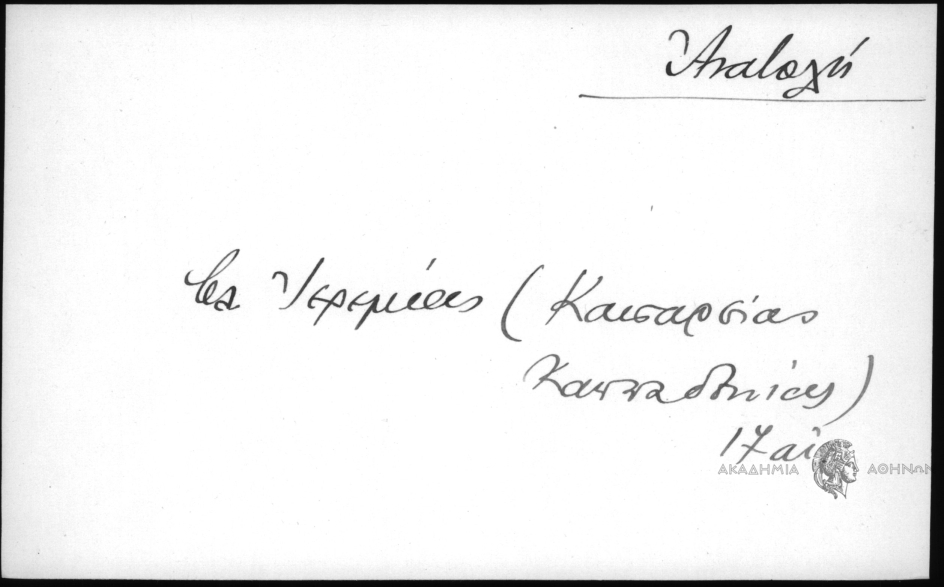 Ἀνατολή
βλ Ἱερεμίας (Καισαρείας
Καππαδοκίας)
17 αἰ
ΑΚΑΔΗΜΙΑ ΑΘΗΝΩΝ